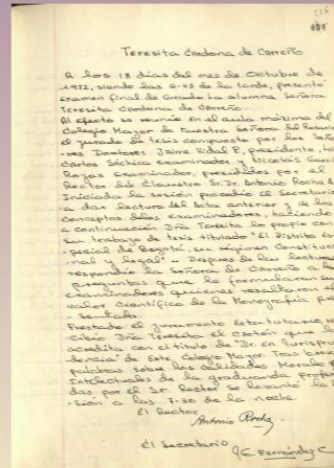 Teresita Cardona de Carreño
A los 18 días del mes de Octubre de
1972, siendo las 6-45 de la tarde, presentó
examen final de Grado la alumna Señora
Teresita Cardona de Carreño.
Al efecto se reunió en el aula máxima del
Colegio Mayor de Nuestra Señora del Rosario
el jurado de tesis compuesto por los Seño-
res Doctores Jaime Vidal P. presidente,
Carlos Sáchica examinador y Nicolás García
Rojas examinador, presididos por el
Rector del Claustro Sr. Dr. Antonio Rocha
Iniciada la sesión procedió el Secretario
a dar lectura del acta anterior y de los
conceptos de los examinadores, haciendo
a continuación Dña Teresita lo propio con
su trabajo de tesis titulado "El Distrito Es-
pecial de Bogotá, su régimen Constitucio-
nal y legal" - Despues de las lecturas
respondió la Señora de Carreño a las
preguntas que le formularon sus
examinadores quienes resaltaron el
valor Científico de la Monografía pre-
sentada.
Prestado el juramento estatutario, re-
cibió Dña Teresita el cartón que la
acredita con el título de "Dr. en Jurispru-
dencia" de Este Colegio Mayor. Tras breves
palabras sobre las calidades Morales e
Intelectuales de la graduanda
das por el Sr. Rector se levantó la se-
sión a las 7-30 de la noche.
El Rector
Antonio Rocha
El Secretario
Fernández C